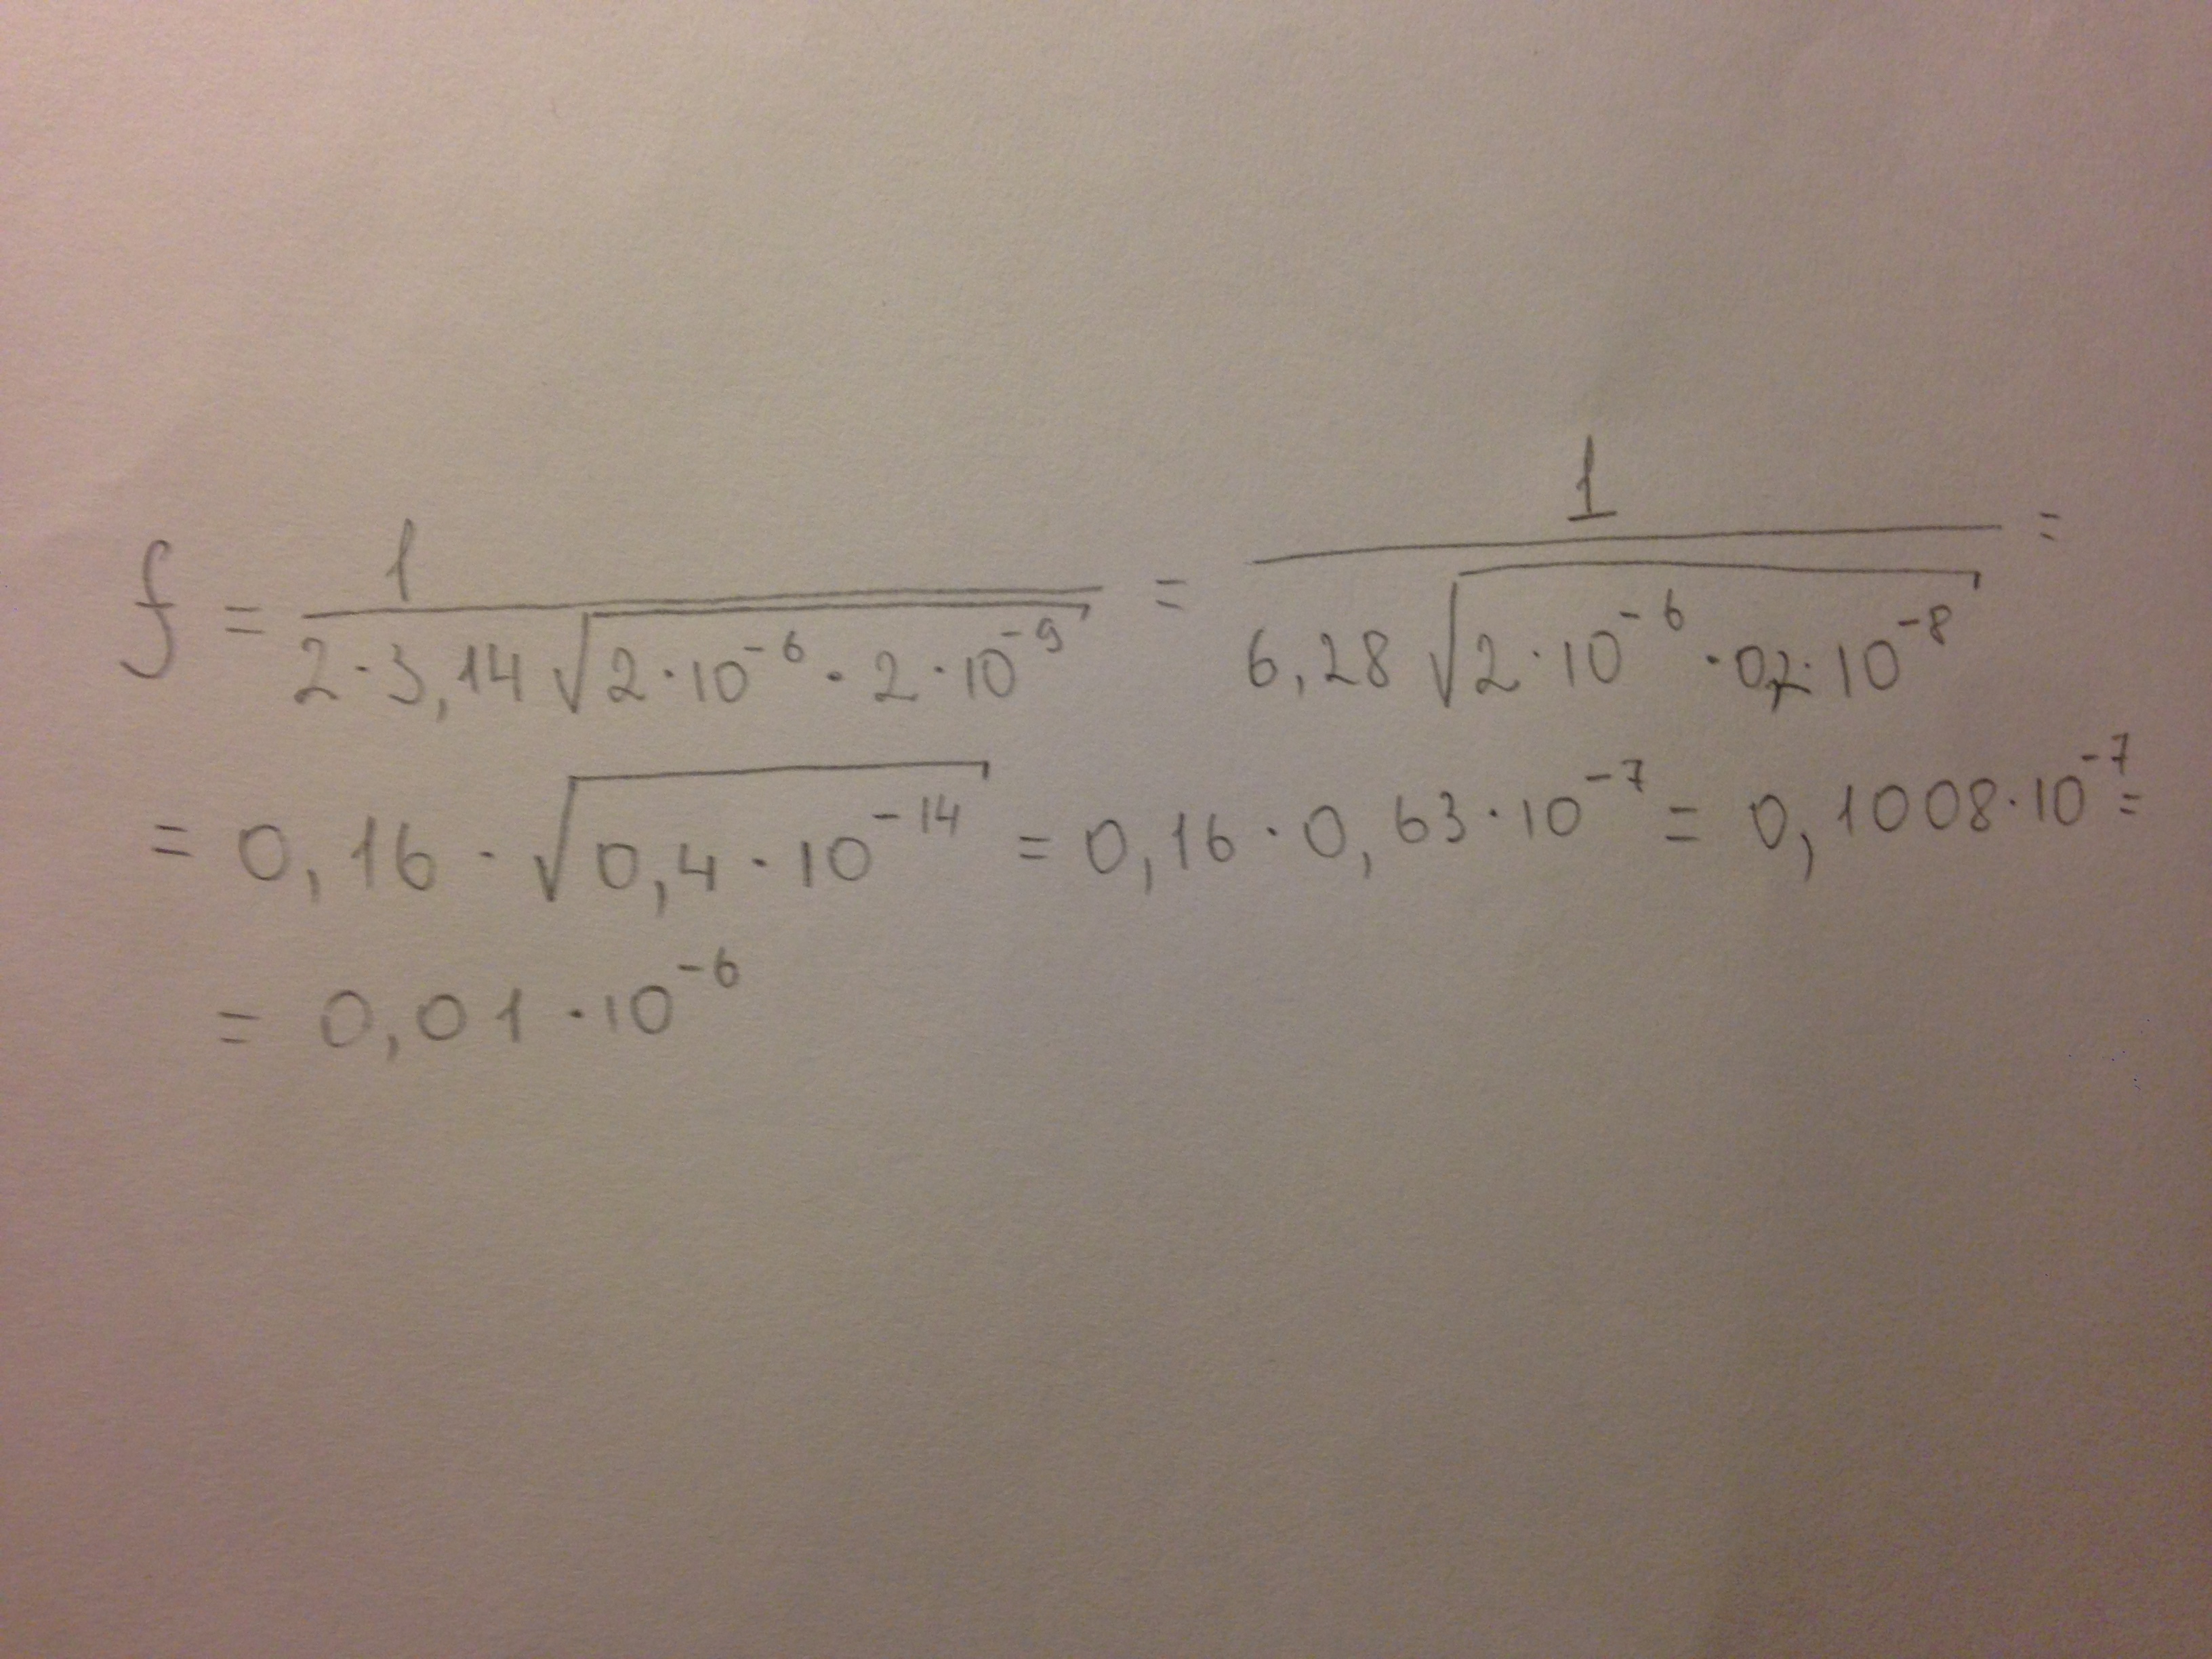 f = 1/(2·3,14√(2·10⁻⁶·2·10⁻⁹)) = 1/(6,28√(2·10⁻⁶·0,2·10⁻⁸)) =
= 0,16·√(0,4·10⁻¹⁴) = 0,16·0,63·10⁻⁷ = 0,1008·10⁻⁷ =
= 0,01·10⁻⁶